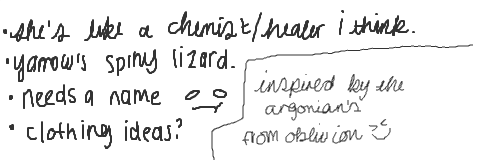 • she's like a chemist/healer i think.
• yarrow's spiny lizard.
• needs a name
• clothing ideas?
inspired by the
argonian's
from oblivion